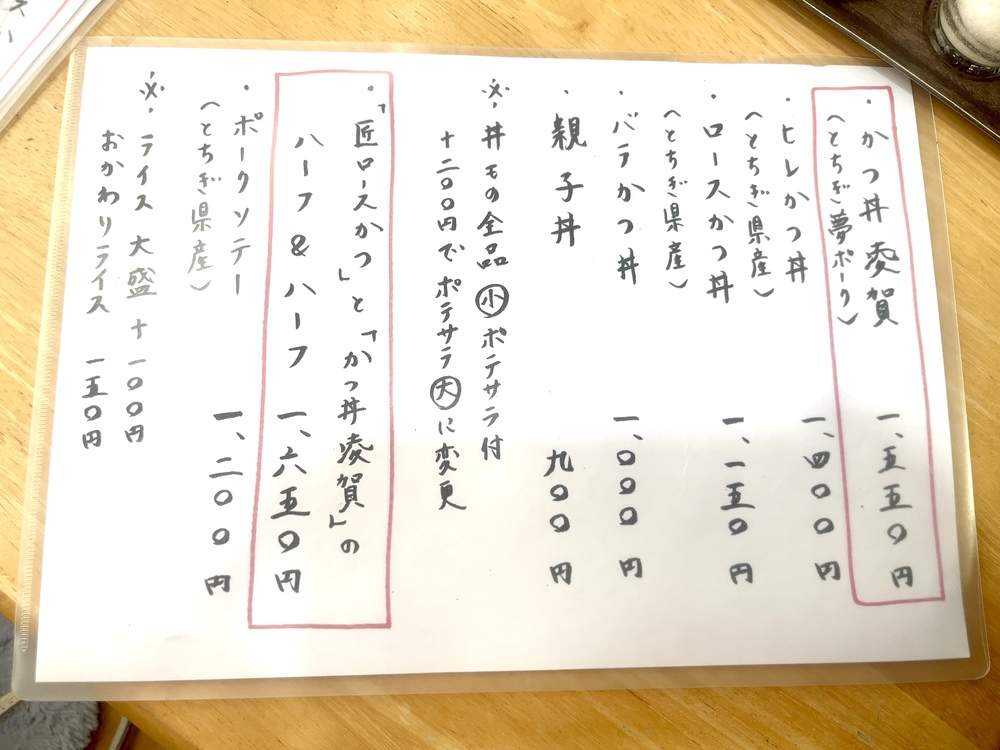 ・かつ丼 凌賀 一、五五〇円
(とちぎ夢ポーク)
・ヒレかつ丼 一、四〇〇円
(とちぎ県産)
・ロースかつ丼 一、一五〇円
(とちぎ県産)
・バラかつ丼 一、〇〇〇円
・親子丼 九〇〇円
※、丼もの全品 小 ポテサラ付
十二〇〇円でポテサラ 大 に変更
・「匠ロースかつ」と「かつ丼凌賀」の
ハーフ & ハーフ 一、六五〇円
・ポークソテー 一、二〇〇円
(とちぎ県産)
※、ライス 大盛 十一〇〇円
おかわりライス 一五〇円